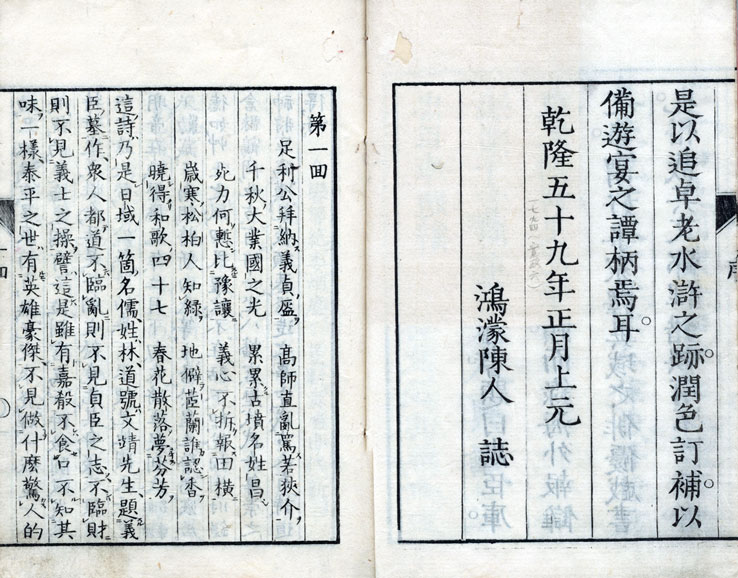 是以追卓老水滸之跡。潤色訂補。以
備遊宴之譚柄焉耳。
乾隆五十九年正月上元
鴻濛陳人 誌
第一回
足利公拜納義貞盔 高師直亂罵若狹介
千秋大業國之光 累累古墳名姓昌
死力何慙比豫讓 義心不折報田橫
嵗寒松柏人知綠 地僻茝蘭誰認香
曉得和歌四十七 春花散落夢芬芳
這詩乃是日域一箇名儒、姓林、道號文靖先生、題義
臣墓作、衆人都道不臨亂則不見貞臣之志、不臨財
則不見義士之操、譬這是雖有嘉殽不食口不知其
味一樣泰平之世、有英雄豪傑不見做什麽驚人的